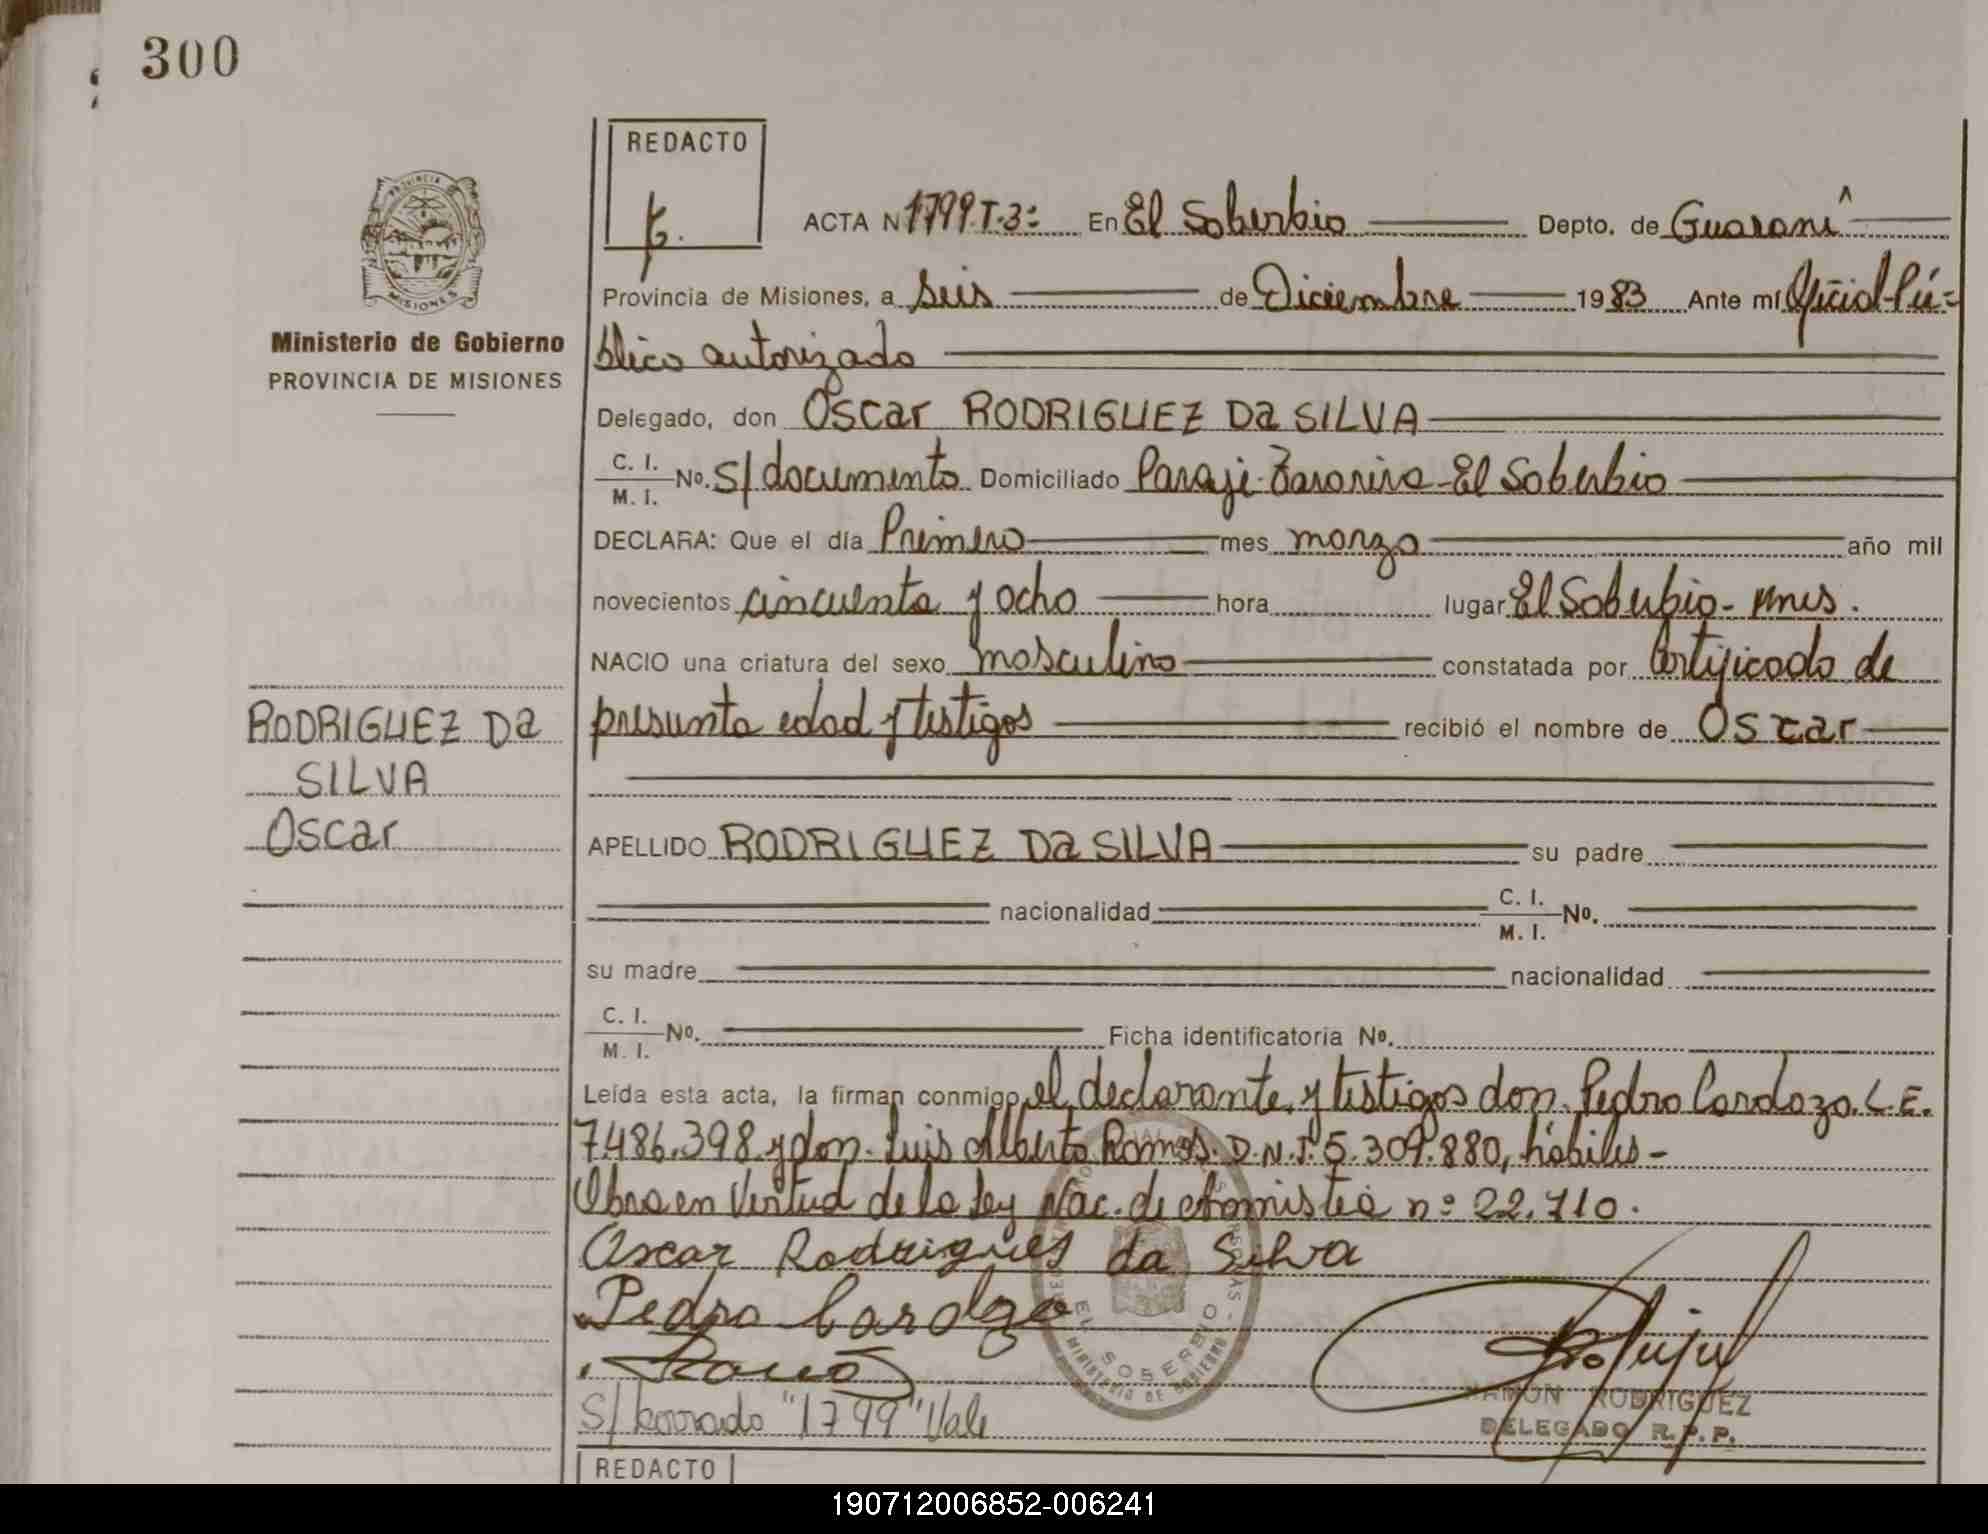 300
REDACTO
PROVINCIA
MISIONES
Ministerio de Gobierno
PROVINCIA DE MISIONES
ACTA N 1799.T-3º En El Soberbio Depto. de Guaraní
Provincia de Misiones, a seis de Diciembre 1983 Ante mí Oficial-Pú=
blico autorizado
Delegado, don Oscar RODRIGUEZ Da SILVA
C. I. M. I. No. S/documento Domiciliado Paraje El Soberbio
DECLARA: Que el día Primero mes marzo año mil
novecientos cincuenta y ocho hora lugar El Soberbio- mnes.
NACIO una criatura del sexo masculino constatada por Certificado de
presunta edad y testigos recibió el nombre de Oscar
RODRIGUEZ Da
SILVA
Oscar
APELLIDO RODRIGUEZ Da SILVA su padre
nacionalidad C. I. M. I. No.
su madre nacionalidad
C. I. M. I. No. Ficha identificatoria No.
Leída esta acta, la firman conmigo el declarante, y testigos don. Pedro Cardozo. L.E.
7.486.398. y don. Luis Alberto Ramos. D.N.I. 5.309.880, hábiles-
Obra en Virtud de la Ley Nac. de Amnistia nº 22.710.
Oscar Rodrigues da Silva
Pedro Cardozo
EL SOBERBIO
MINISTERIO DE GOBIERNO
RAMON RODRIGUEZ
DELEGADO R. P. P.
S/borrado "1799" Vale
REDACTO
190712006852-006241